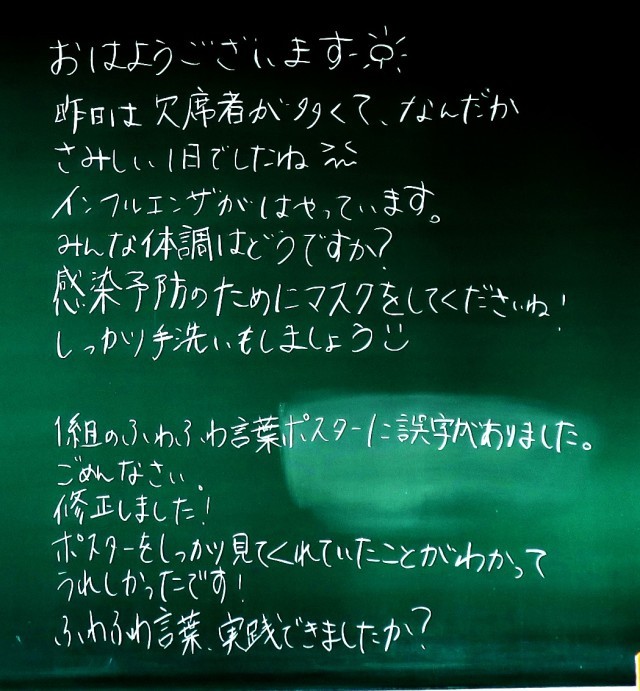 おはようございます
昨日は欠席者が多くて、なんだか
さみしい1日でしたね
インフルエンザがはやっています。
みんな体調はどうですか?
感染予防のためにマスクをしてくださいね!
しっかり手洗いもしましょう
1組のふわふわ言葉ポスターに誤字がありました。
ごめんなさい。
修正しました!
ポスターをしっかり見てくれていたことがわかって
うれしかったです!
ふわふわ言葉、実践できましたか?